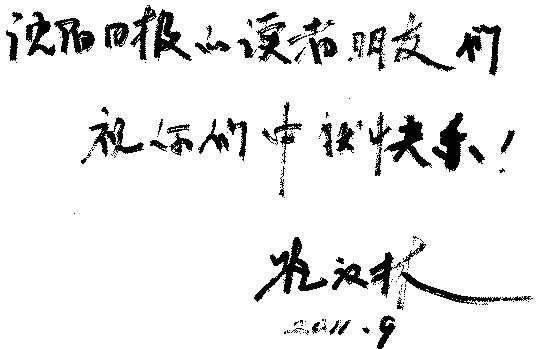 沈阳日报的读者朋友们
祝你们中秋快乐！
巩汉林
2011.9